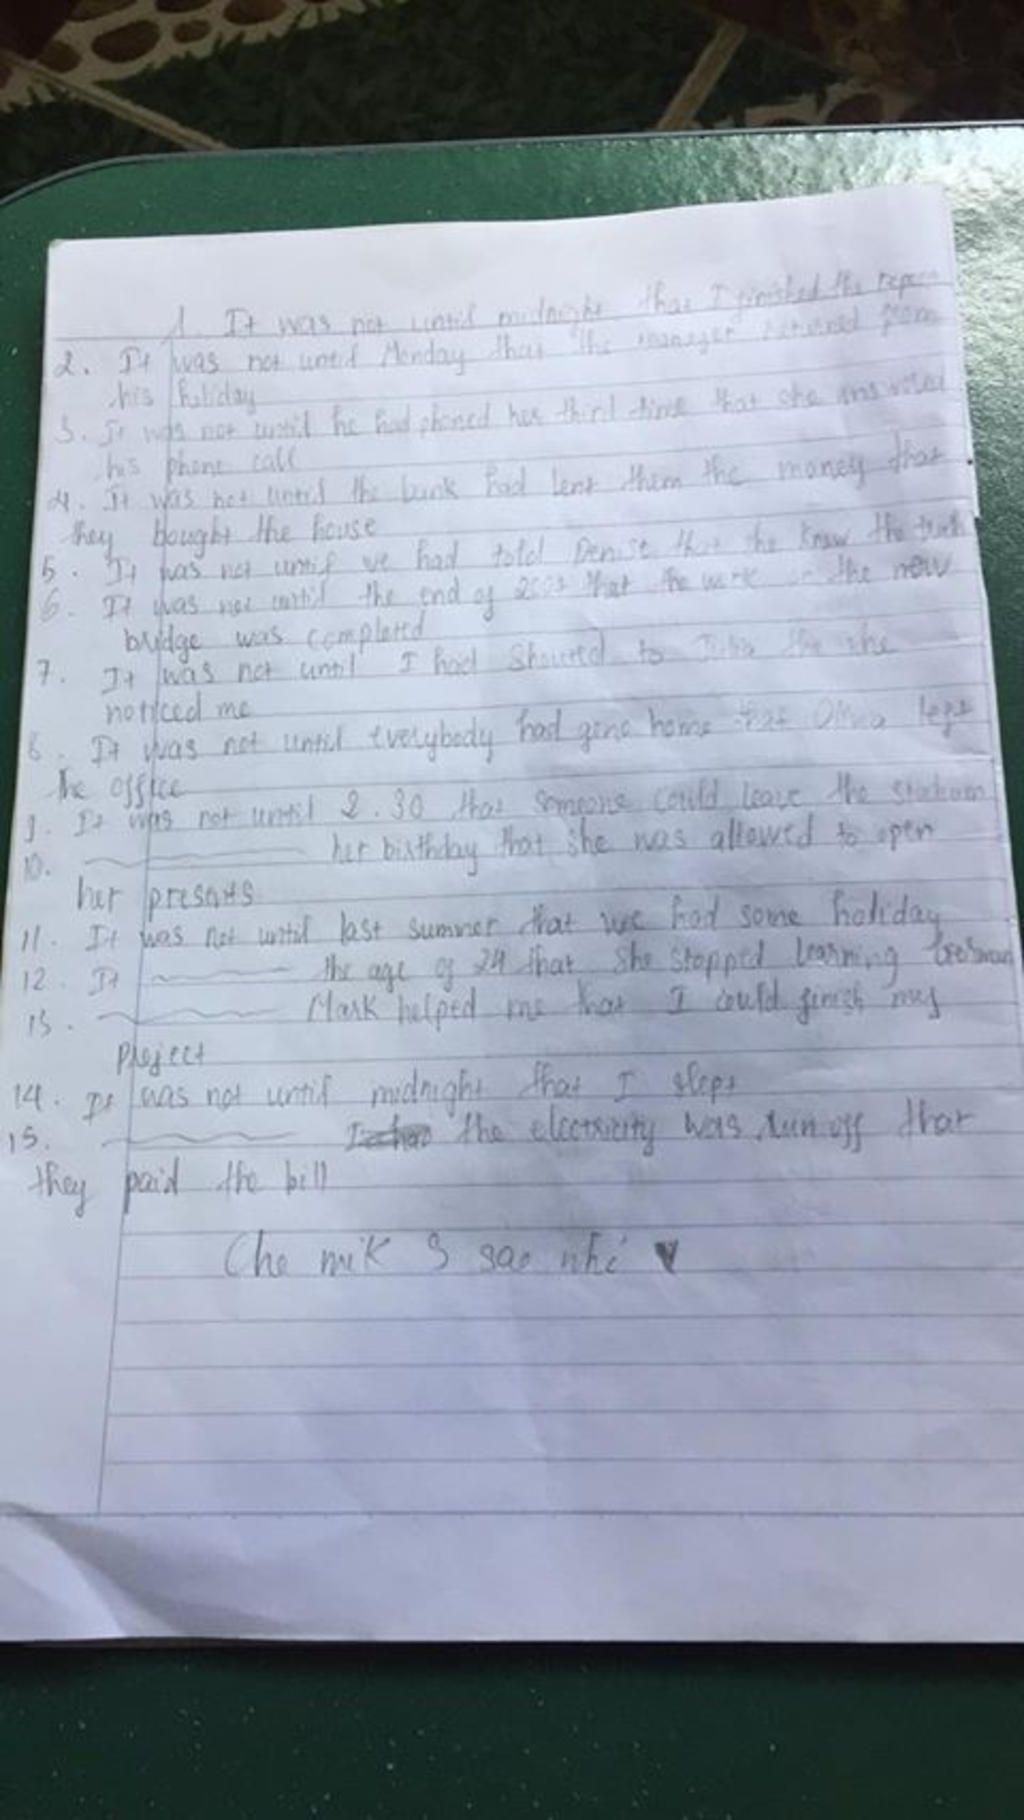 1. It was not until midnight that I finished the
2. It was not until Monday that the manager returned from
his holiday
3. It was not until he had phoned her third time that she
his phone call
4. It was not until the bank had lent them the money that
they bought the house
5. It was not until we had told Denise that she knew the truth
6. It was not until the end of that the work on the new
bridge was completed
7. It was not until I had shouted to she
noticed me
8. It was not until everybody had gone home that Olivia left
the office
9. It was not until 2.30 that someone could leave the
10. her birthday that she was allowed to open
her
11. It was not until last summer that we had some holiday
12. It the age of 24 that she stopped learning
13. Mark helped me that I could finish my
project
14. It was not until midnight that I slept
15. the electricity was off that
they paid the bill
Cho mik 5 sao nhé